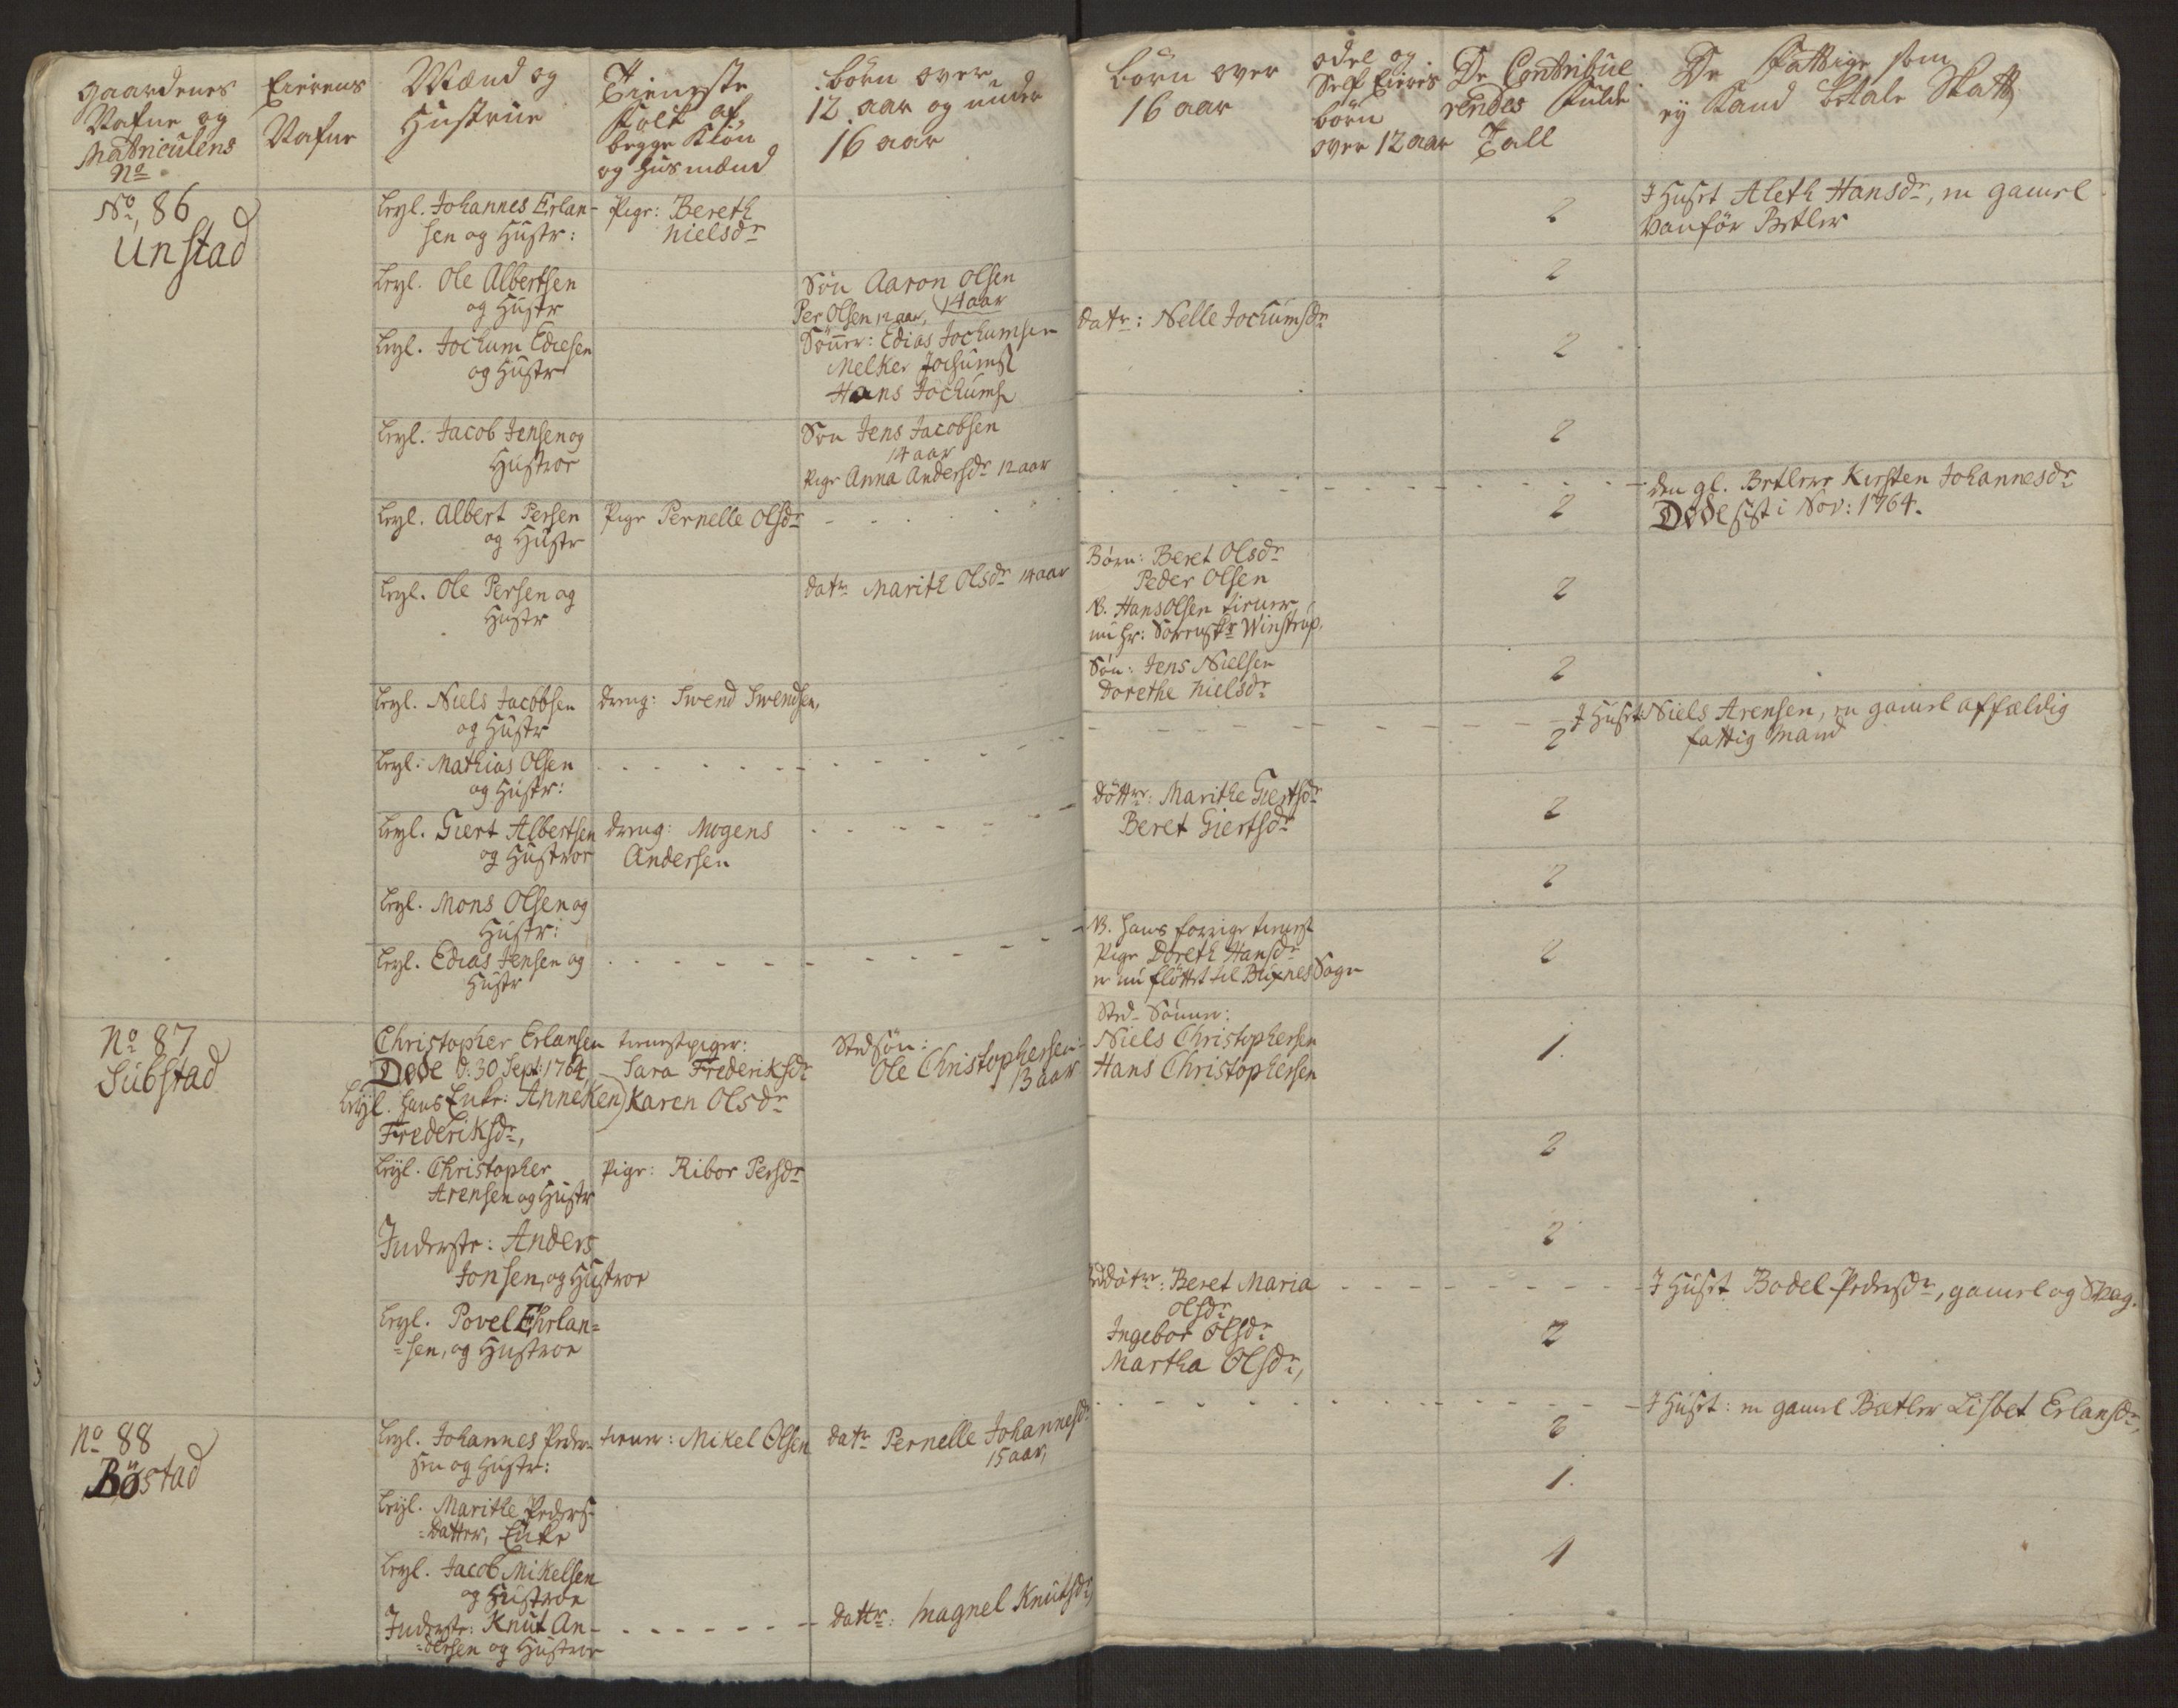 Gaardenes
Nafne og
Matriculens
No
Eierens
Nafne
Mænd og
Hustrue
Tieneste
Folk af
begge Kiön
og Husmænd
börn over
12 aar og under
16 aar
börn over
16 aar
odel og
Self Eieres
börn
over 12 aar
De Contribue
rendes fulde
Tall
De Fattige som
ey Kand betale Skatt
No, 86
Unstad
Leyl. Johannes Erlan-
sen og Hustr:
Pige: Bereth
Nielsdr
2
I Huset Aleth Hansdr, en gamel
Vanför Betler
Leyl. Ole Albertsen
og Hustr
Sön Aaron Olsen
14 aar
Per Olsen 12 aar,
2
Leyl. Jochum Ediesen
og Hustr
Sönner: Edias Jochumsen
Melker Jochums
Hans Jochums
datr: Nelle Jochumsdr
2
Leyl. Jacob Jensen og
Hustroe
Sön Jens Jacobsen
14 aar
Pige Anna Andersdr 12 aar
2
Leyl. Albert Persen
og Hustr
Pige Pernelle Olsdr
2
den gl. Betlere Kirsten Johannesdr
Döde sist i Nov: 1764.
Leyl. Ole Persen og
Hustr
datr Marith Olsdr 14 aar
Börn: Beret Olsdr
Peder Olsen
NB. Hans Olsen tiener
nu Hr: Sorenskr Winstrup.
2
Leyl. Niels Jacobsen
og Hustr
dreng: Swend Swendsen,
Sön: Jens Nielsen
Dorethe Nielsdr
2
Leyl. Mathias Olsen
og Hustr:
2
I Huset Niels Arensen, en gamel affældig
fattig Mand
Leyl. Giert Albertsen
og Hustroe
dreng: Mogens
Andersen
döttre: Marithe Giertsdr
Beret Giertsdr
2
Leyl. Mons Olsen og
Hustr:
2
Leyl. Edias Jensen og
Hustr
NB. Hans forrige tieneste
Pige Doreth Hansdr
er nu flöttet til Buxnes Sogn
2
No 87
Substad
Christopher Erlansen
Döde d. 30 Sept: 1764,
Leyl. Hans Enke: Anneken
Frederiksdr,
tienestpiger:
Sara Frederiksdr
Karen Olsdr
Stedsön:
Ole Christophersen
13 aar
Sted-Sönner:
Niels Christophersen
Hans Christophersen
1.
Leyl. Christopher
Arensen og Hustr
Pige: Ribor Persdr
2
Inderste: Anders
Jonsen, og Hustroe
2
Leyl. Povel Ehrlan=
=sen, og Hustroe
Beret Maria
Olsdr
Ingebor Olsdr
Martha Olsdr,
2
I Huset Bodel Pedersdr, gamel og Svag.
No 88
Böstad
Leyl. Johannes Peder-
sen og Hustr:
tiener: Mikel Olsen
datr Pernelle Johannesdr
15 aar,
2
I Huset: en gamel Betler Lisbet Erlansdr,
Leyl. Marithe Peders-
=datter, Enke
1.
Leyl. Jacob Mikelsen
og Hustroe
1
Inderste: Knut An-
=dersen og Hustroe
dattr: Magnel Knutsdr